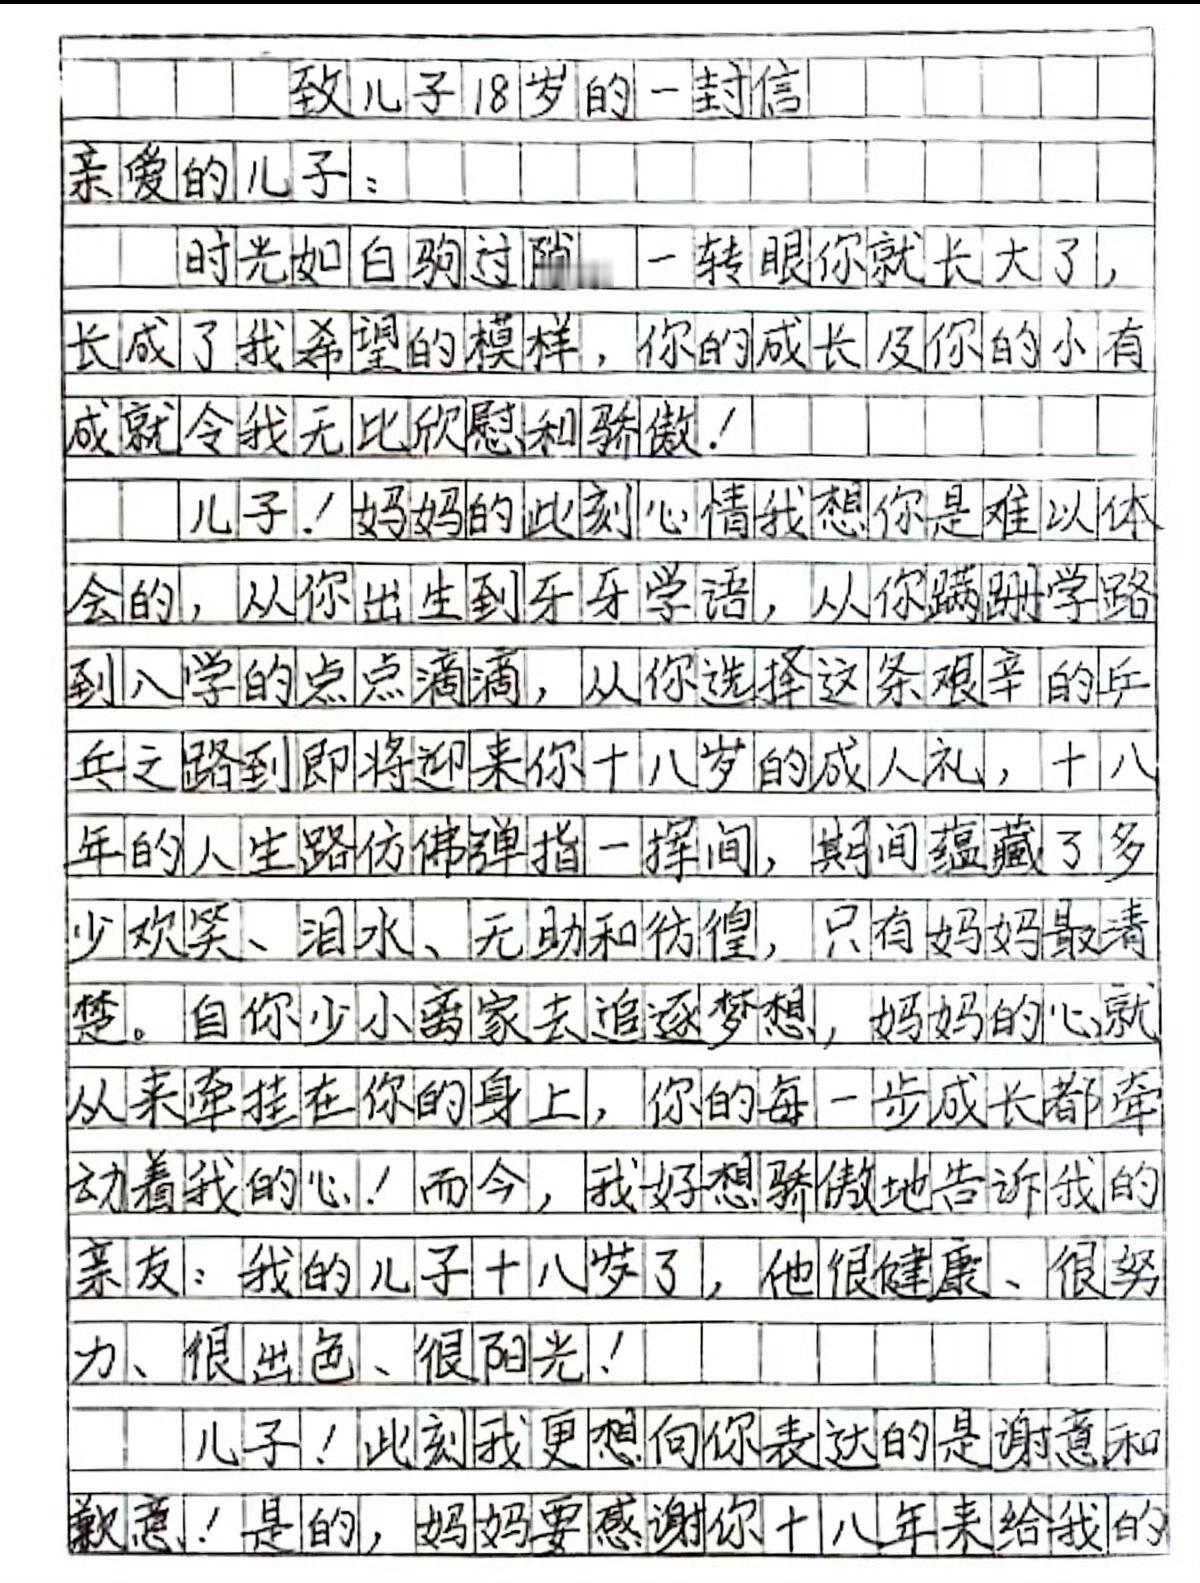 致儿子18岁的一封信
亲爱的儿子：
时光如白驹过隙 一转眼你就长大了，
长成了我希望的模样，你的成长及你的小有
成就令我无比欣慰和骄傲！
儿子！妈妈的此刻心情我想你是难以体
会的，从你出生到牙牙学语，从你蹒跚学路
到入学的点点滴滴，从你选择这条艰辛的乒
乓之路到即将迎来你十八岁的成人礼，十八
年的人生路仿佛弹指一挥间，期间蕴藏了多
少欢笑、泪水、无助和彷徨，只有妈妈最清
楚。自你少小离家去追逐梦想，妈妈的心就
从来牵挂在你的身上，你的每一步成长都牵
动着我的心！而今，我好想骄傲地告诉我的
亲友：我的儿子十八岁了，他很健康、很努
力、很出色、很阳光！
儿子！此刻我更想向你表达的是谢意和
歉意！是的，妈妈要感谢你十八年来给我的